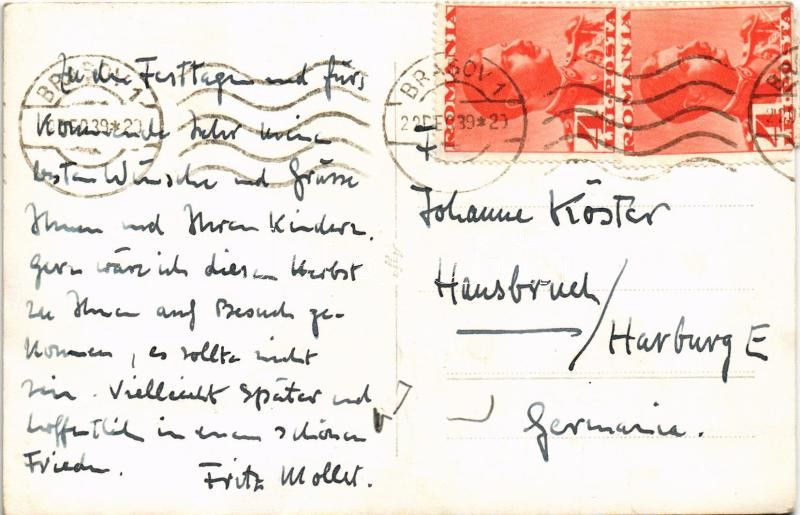 Zu den Festtagen und fürs
Kommende Jahr meine
besten Wünsche und Grüsse
Ihnen und Ihren Kindern.
Gern wäre ich diesen Herbst
zu Ihnen auf Besuch ge-
kommen, es sollte nicht
sein. Vielleicht später und
hoffentlich in einem schönen
Frieden.
Fritz Mollet.
BRASOV 1
22DEC939*20
ROMANIA
4L POSTA
ROMANIA
4L POSTA
Johanne Köster
Hausbruch/
Harburg E
Germania.